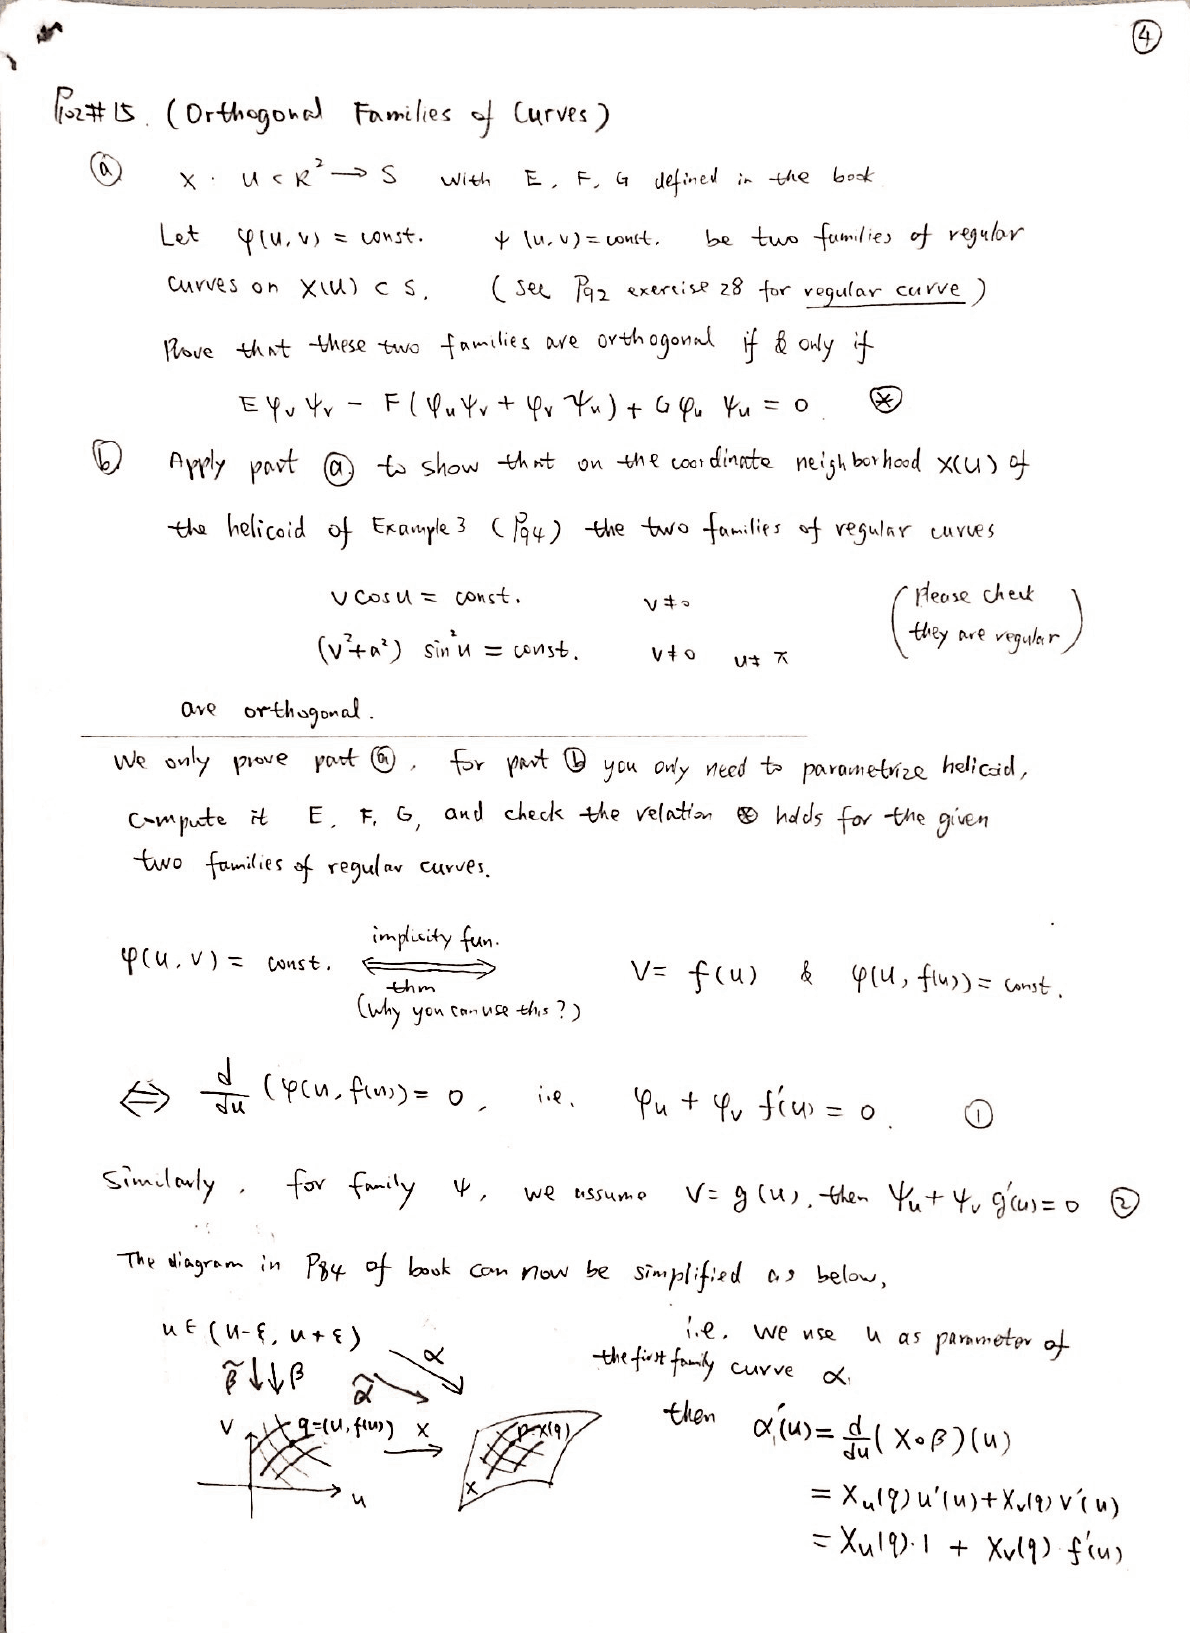 ④
P102#15. (Orthogonal Families of Curves)
ⓐ X: U ⊂ R² → S with E, F, G defined in the book.
Let φ(u,v) = const. ψ(u,v) = const. be two families of regular
curves on X(U) ⊂ S. (see P92 exercise 28 for regular curve)
Prove that these two families are orthogonal if & only if
E φv ψv − F(φu ψv + φv ψu) + G φu ψu = 0. ⊛
ⓑ Apply part ⓐ to show that on the coordinate neighborhood X(U) of
the helicoid of Example 3 (P94) the two families of regular curves
v cos u = const. v ≠ 0
(v²+a²) sin²u = const. v ≠ 0 u ≠ π
(Please check
they are regular)
are orthogonal.
We only prove part ⓐ, for part ⓑ you only need to parametrize helicoid,
compute it E, F, G, and check the relation ⊛ holds for the given
two families of regular curves.
φ(u,v) = const. ⟺ implicity fun. thm (why you can use this?) v = f(u) & φ(u, f(u)) = const.
⟺ d/du (φ(u, f(u)) = 0, i.e. φu + φv f'(u) = 0. ①
Similarly, for family ψ, we assume v = g(u), then ψu + ψv g'(u) = 0 ②
The diagram in P84 of book can now be simplified as below,
u ∈ (u-ε, u+ε)
β̃ ↓↓ β α̃ α
v q=(u, f(u)) X p=X(q)
u X
i.e. we use u as parameter of
the first family curve α,
then α'(u) = d/du (X∘β)(u)
= Xu(q) u'(u) + Xv(q) v'(u)
= Xu(q)·1 + Xv(q)·f'(u)